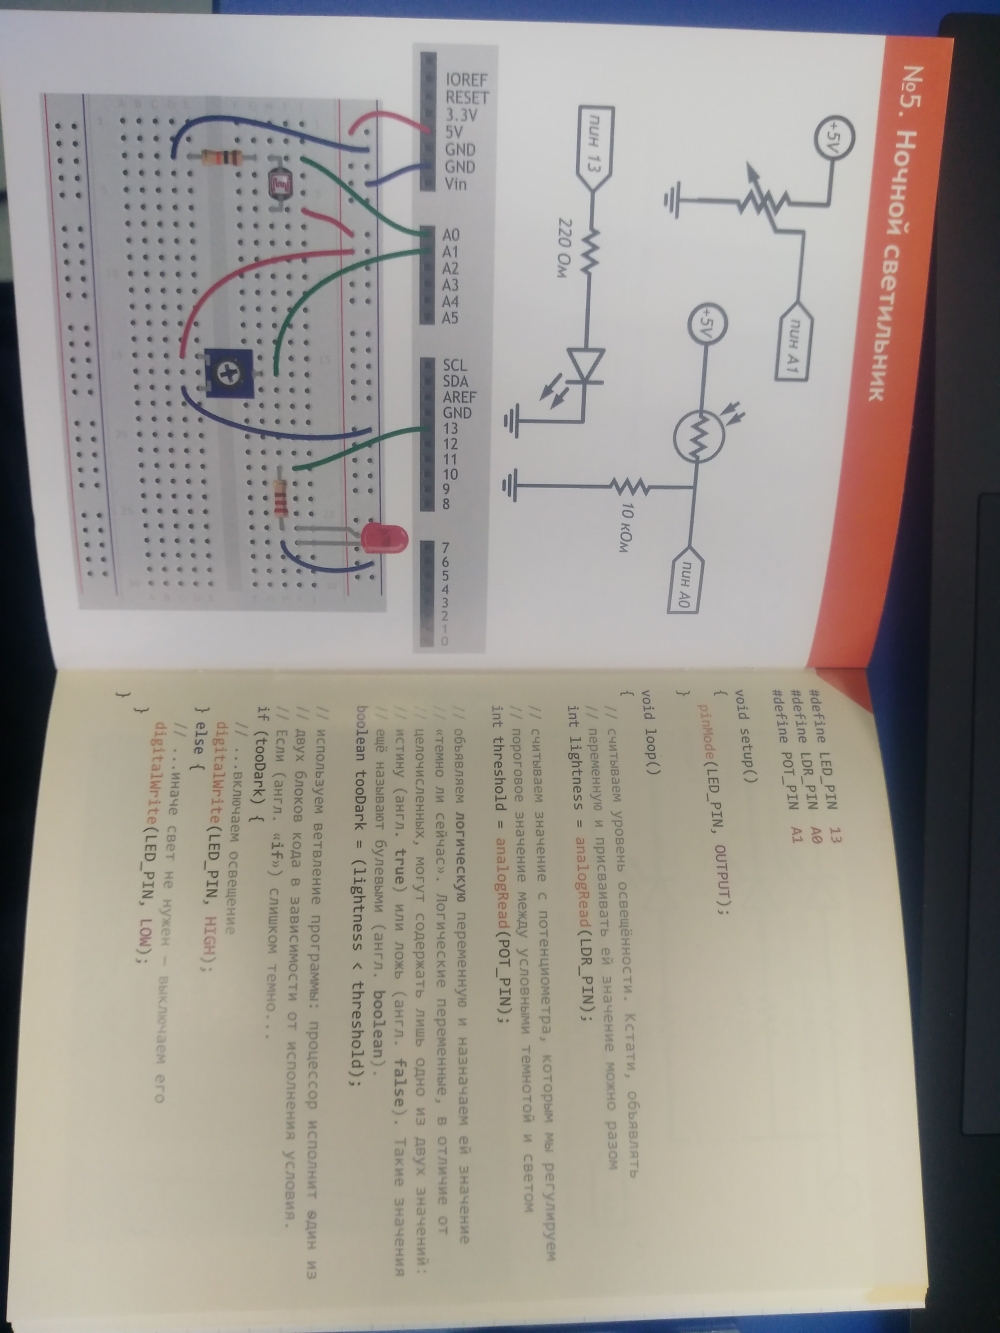 №5. Ночной светильник
+5V
пин A1
+5V
пин A0
10 кОм
пин 13
220 Ом
IOREF
RESET
3.3V
5V
GND
GND
Vin
A0
A1
A2
A3
A4
A5
SCL
SDA
AREF
GND
13
12
11
10
9
8
7
6
5
4
3
2
1
0
#define LED_PIN 13
#define LDR_PIN A0
#define POT_PIN A1
void setup()
{
pinMode(LED_PIN, OUTPUT);
}
void loop()
{
// считываем уровень освещённости. Кстати, объявлять
// переменную и присваивать ей значение можно разом
int lightness = analogRead(LDR_PIN);
// считываем значение с потенциометра, которым мы регулируем
// пороговое значение между условными темнотой и светом
int threshold = analogRead(POT_PIN);
// объявляем логическую переменную и назначаем ей значение
// «темно ли сейчас». Логические переменные, в отличие от
// целочисленных, могут содержать лишь одно из двух значений:
// истину (англ. true) или ложь (англ. false). Такие значения
// ещё называют булевыми (англ. boolean).
boolean tooDark = (lightness < threshold);
// используем ветвление программы: процессор исполнит один из
// двух блоков кода в зависимости от исполнения условия.
// Если (англ. «if») слишком темно...
if (tooDark) {
// ...включаем освещение
digitalWrite(LED_PIN, HIGH);
} else {
// ...иначе свет не нужен — выключаем его
digitalWrite(LED_PIN, LOW);
}
}